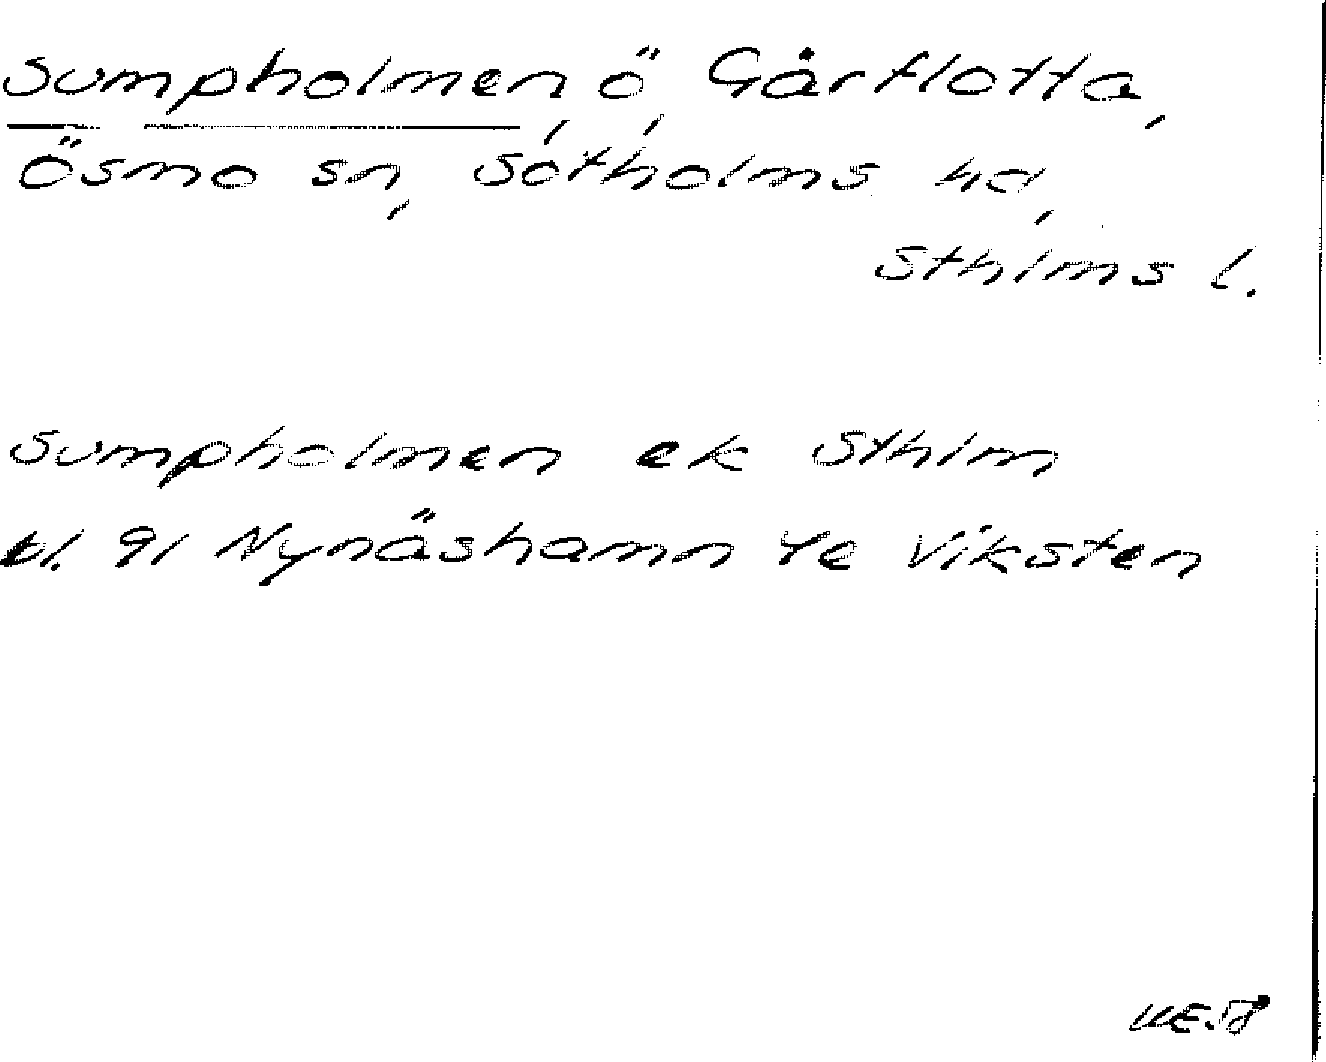 Sumpholmen, ö, Gårflotta,
Ösmo sn, Sotholms hd,
Sthlms l.
Sumpholmen ek Sthlm
bl. 91 Nynäshamn 4e Viksten
UE.58